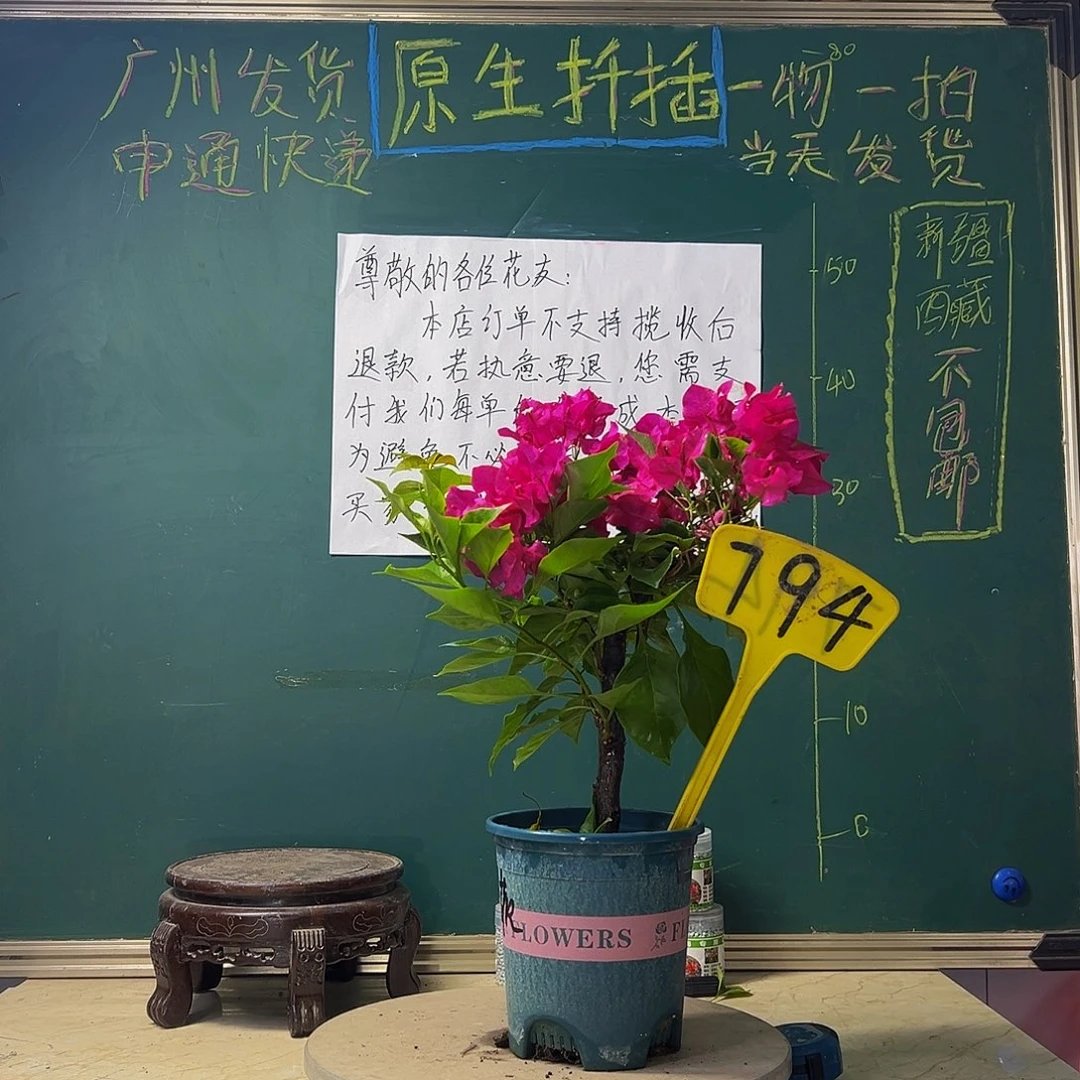 广州发货
申通快递
原生扦插
一物一拍
80
当天发货
新疆
西藏
不包邮
50
40
30
10
0
尊敬的各位花友:
本店订单不支持揽收后
退款,若执意要退,您需支
付我们每单 成本
为避免不必
买
794
FLOWERS